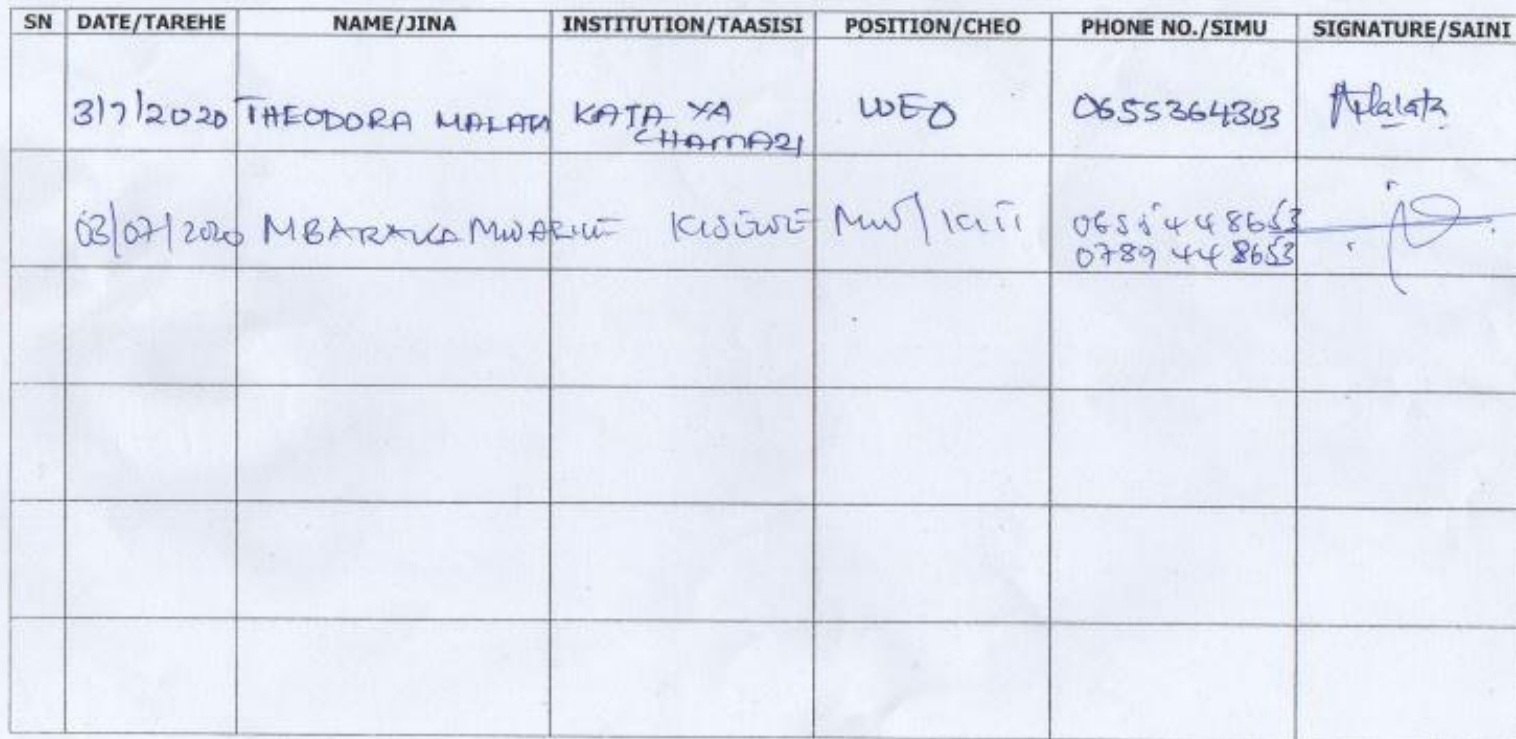 SN DATE/TAREHE NAME/JINA INSTITUTION/TAASISI POSITION/CHEO PHONE NO./SIMU SIGNATURE/SAINI
3/7/2020 THEODORA MALATA KATA YA CHAMAZI WEO 0655364303 Malata
03/07/2020 MBARAKA KISEWE MW/KITI
0789 448653